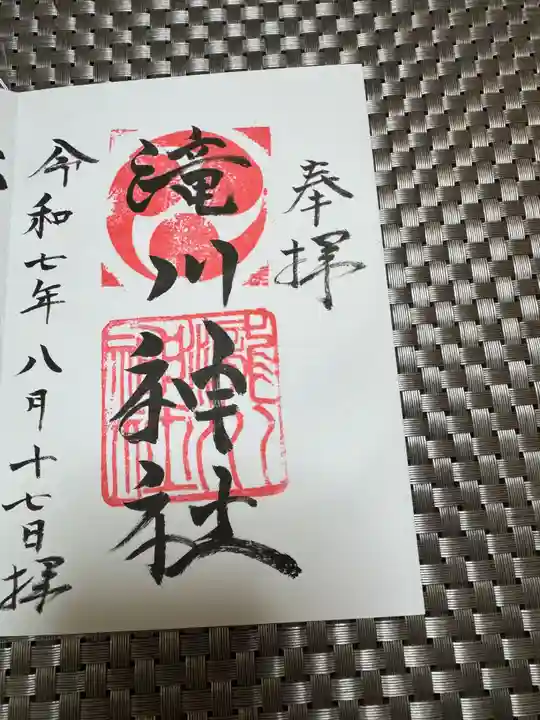 奉拝
滝川神社
令和七年八月十七日拝